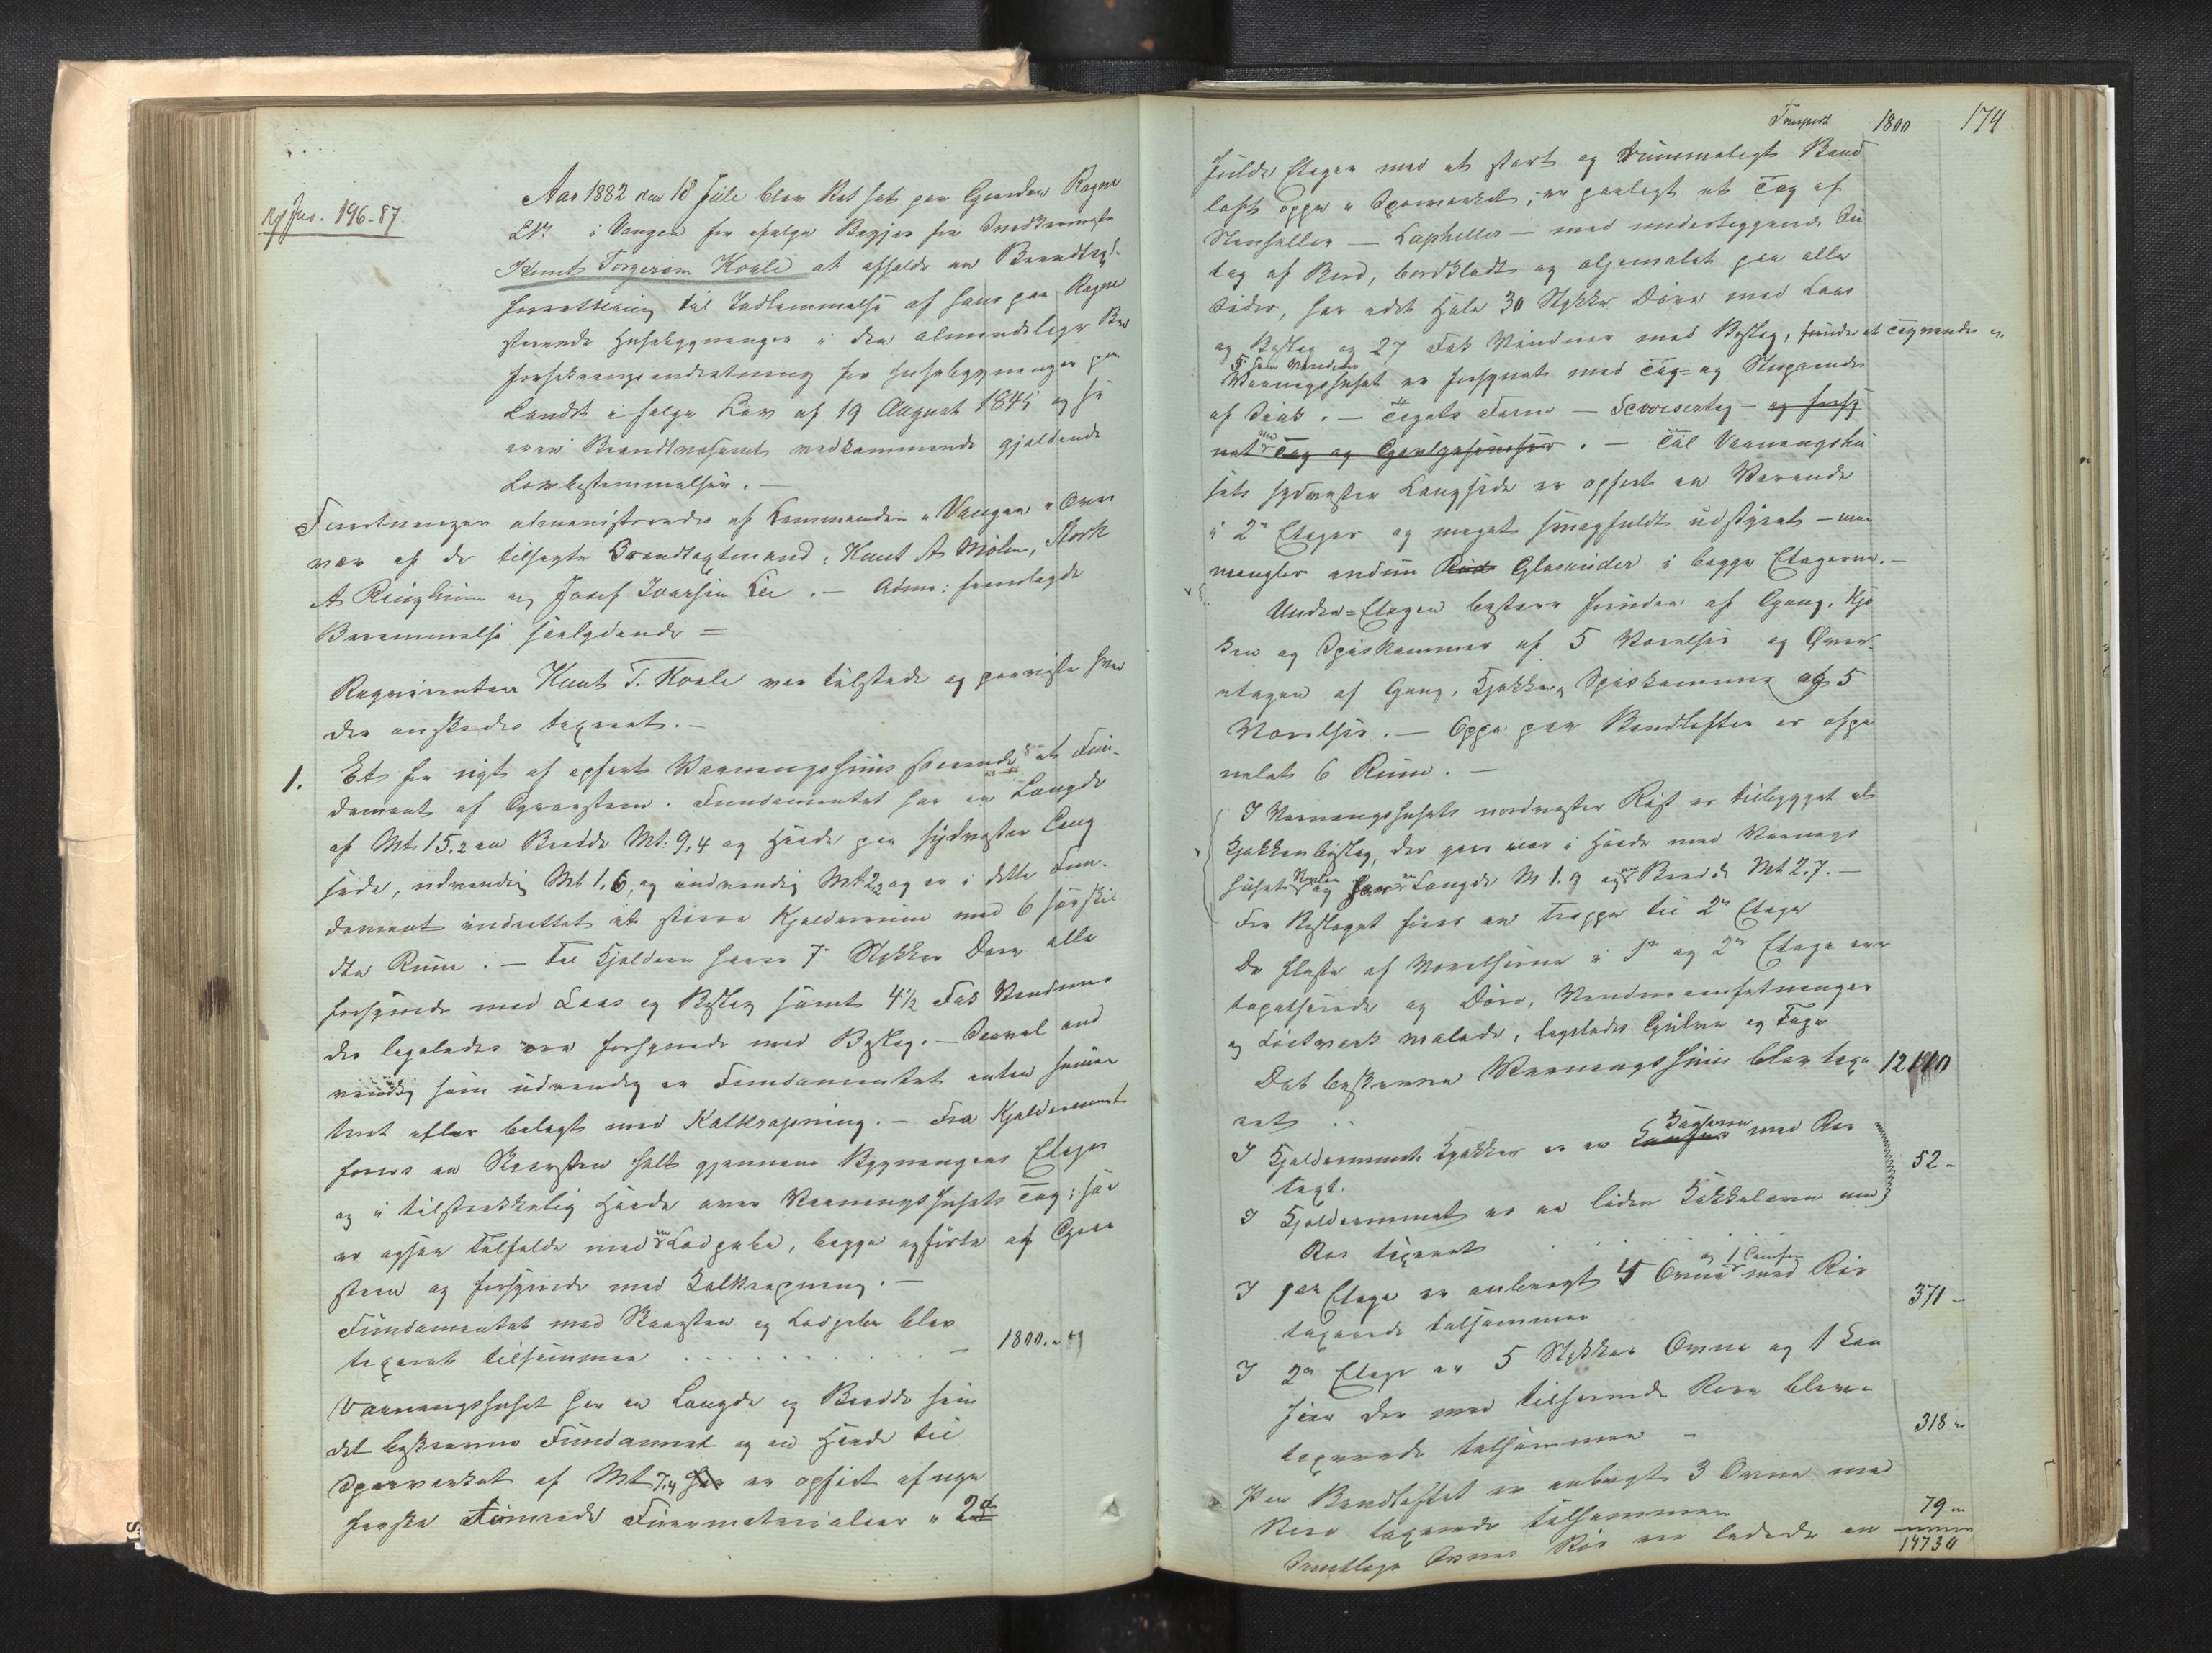 Ny Jus. 196-87.
Aar 1882 den 18 Juli blev Ret sat paa Gaarden Rogne
LNr. i Vangen for efter Begjær fra Snedkermester
Knut Torgersen Koale at afholde en Brandtaxt-
forretning til Indlemmelse af hans paa Rogne
staaende Husebygninger i den almindelige Brand
forsikringsindretning for Husebygninger paa
Landet ifølge Lov af 19 August 1845 og se
nere Brandtvæsenet vedkommende gjældende
Lovbestemmelser. —
Forretningen administreredes af Lensmanden i Vangen i Over
vær af de tilsagte Brandtaxtmænd: Knut A. Mølster, Styrk
A Ringheim og Josef Ivarsen Lie. — Adm: fremlagde
Berammelse saalydende =
Requirenten Knut T. Koale var tilstede og paaviste hvad
der ønskedes taxeret. —
1. Et for nyt af opført Vaaningshuus staaende paa et Fun-
dament af Graasteen. Fundamentet har en Længde
af Mt. 15,2 en Bredde Mt. 9,4 og Høide paa sydvestre Lang
side, udvendig Mt 1,6, og indvendig Mt 2,2 og er i dette Fun-
dament indrettet et større Kjælderrum med 6 særskil
dte Rum. — Til Kjælderen hører 7 Stykker Døre alle
forsynede med Laas og Beslag samt 4½ Fag Vinduer
der ligeledes ere forsynede med Beslag. — Saavel ind
vendig som udvendig er Fundamentet enten sement
eret eller belagt med Kalkrapning. — Fra Kjælderrummet
føres en Skorsten helt gjennem Bygningens Etager
og i tilstrækkelig Høide over Vaaningshusets Tag; her
er ogsaa Tilfælde med en Ladpibe, begge opførte af Graa
steen og forsynede med Kalkrapning. —
Fundamentet med Skorsten og Ladpibe blev
taxeret tilsammen . . . . . . . . . — 1800. "
Vaaningshuset har en Længde og Bredde som
det beskrevne Fundament og en Høide til
Sperverket af Mt 7,4 har er opført af nye
friske tømrede Furumaterialier i 2de
Transport 1800 174
fulde Etager med et stort og rummeligt Band
loft oppe i Sperverket, er paalagt et Tag af
Steenheller — Lapheller — med underliggende Su
tag af Bord, bordklædt og oljemalet paa alle
Sider, har udt Hele 30 Stykker Døre med Laas
og Beslag og 27 Fag Vinduer med Beslag,
Vaaningshuset er forsynet med Tag- og Stuprender
af Sink. — Tagets Form — Sveisertag — og forsy
net med Tag og Gavlgesimser. — Til Vaaningshu
sets sydvestre Langside er opført en Veranda
i 2de Etager og meget smagfuldt udstyret — men
mangler endnu Rud Glasruder i begge Etagerne. —
Under-Etagen bestaar foruden af Gang, Kjø
ken og Spiskammer af 5 Værelser og Over-
etagen af Gang, Kjøkken, Spiskammer og 5
Værelser. — Oppe paa Bandloftet er afpa
nelet 6 Rum. —
I Vaaningshusets nordvestre Røst er tilbygget et
Kjøkkenbislag, der gaar i Høide med Vaanings
huset og har en Længde M 1.9 og en Bredde Mt 2,7. —
Fra Bislaget fører en Trappe til 2en Etage
De fleste af Værelserne i 1ste og 2den Etage ere
tapetserede og Døre, Vinduesomfatninger
og Listværk malede, ligeledes Gulve og Tage
Det beskrevne Vaaningshuus blev taxe 12 100
ret . .
I Kjælderrummets Kjøkken er en Kogeovn med Rør 52 -
taxt.
I Kjælderrummet er en liden Kakkelovn med
Rør taxeret . . . . .
I 1ste Etage er anbragt 4 Ovne og 1 Comfur med Rør
taxerede tilsammen 371 -
I 2den Etage er 5 Stykker Ovne og 1 Kom
fur der med tilhørende Rør bleve
taxerede tilsammen - 318 -
Paa Bandloftet er anbragt 3 Ovne med
Rør taxerede tilsammen 79 -
Samtlige Ovnes Rør ere ledede en 14730